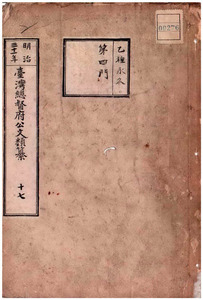 00276
乙種永久
第四門
明治
三十年
臺灣總督府公文類纂
十七